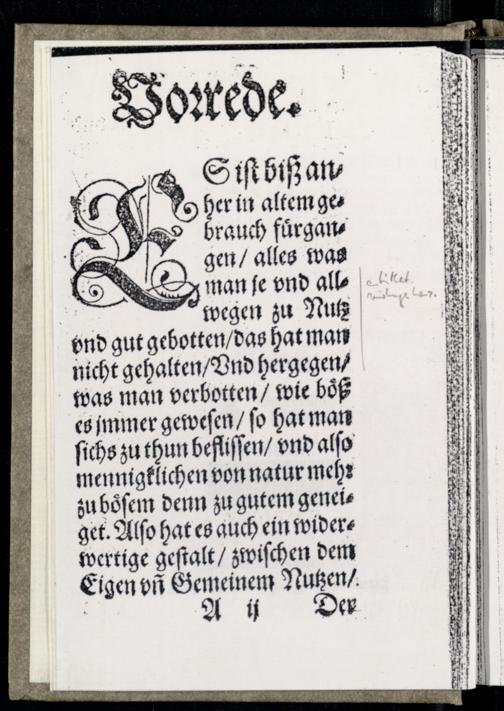 Vorrede.
ES ist biß an-
her in altem ge-
brauch fürgan-
gen/ alles was
man je vnd all-
wegen zu Nutz
vnd gut gebotten/das hat man
nicht gehalten/Vnd hergegen/
was man verbotten/ wie böß
es jmmer gewesen/ so hat man
sichs zu thun beflissen/ vnd also
mennigklichen von natur mehr
zu bösem denn zu gutem genei-
get. Also hat es auch ein wider-
wertige gestalt/ zwischen dem
Eigen vñ Gemeinem Nutzen/
A ij Der